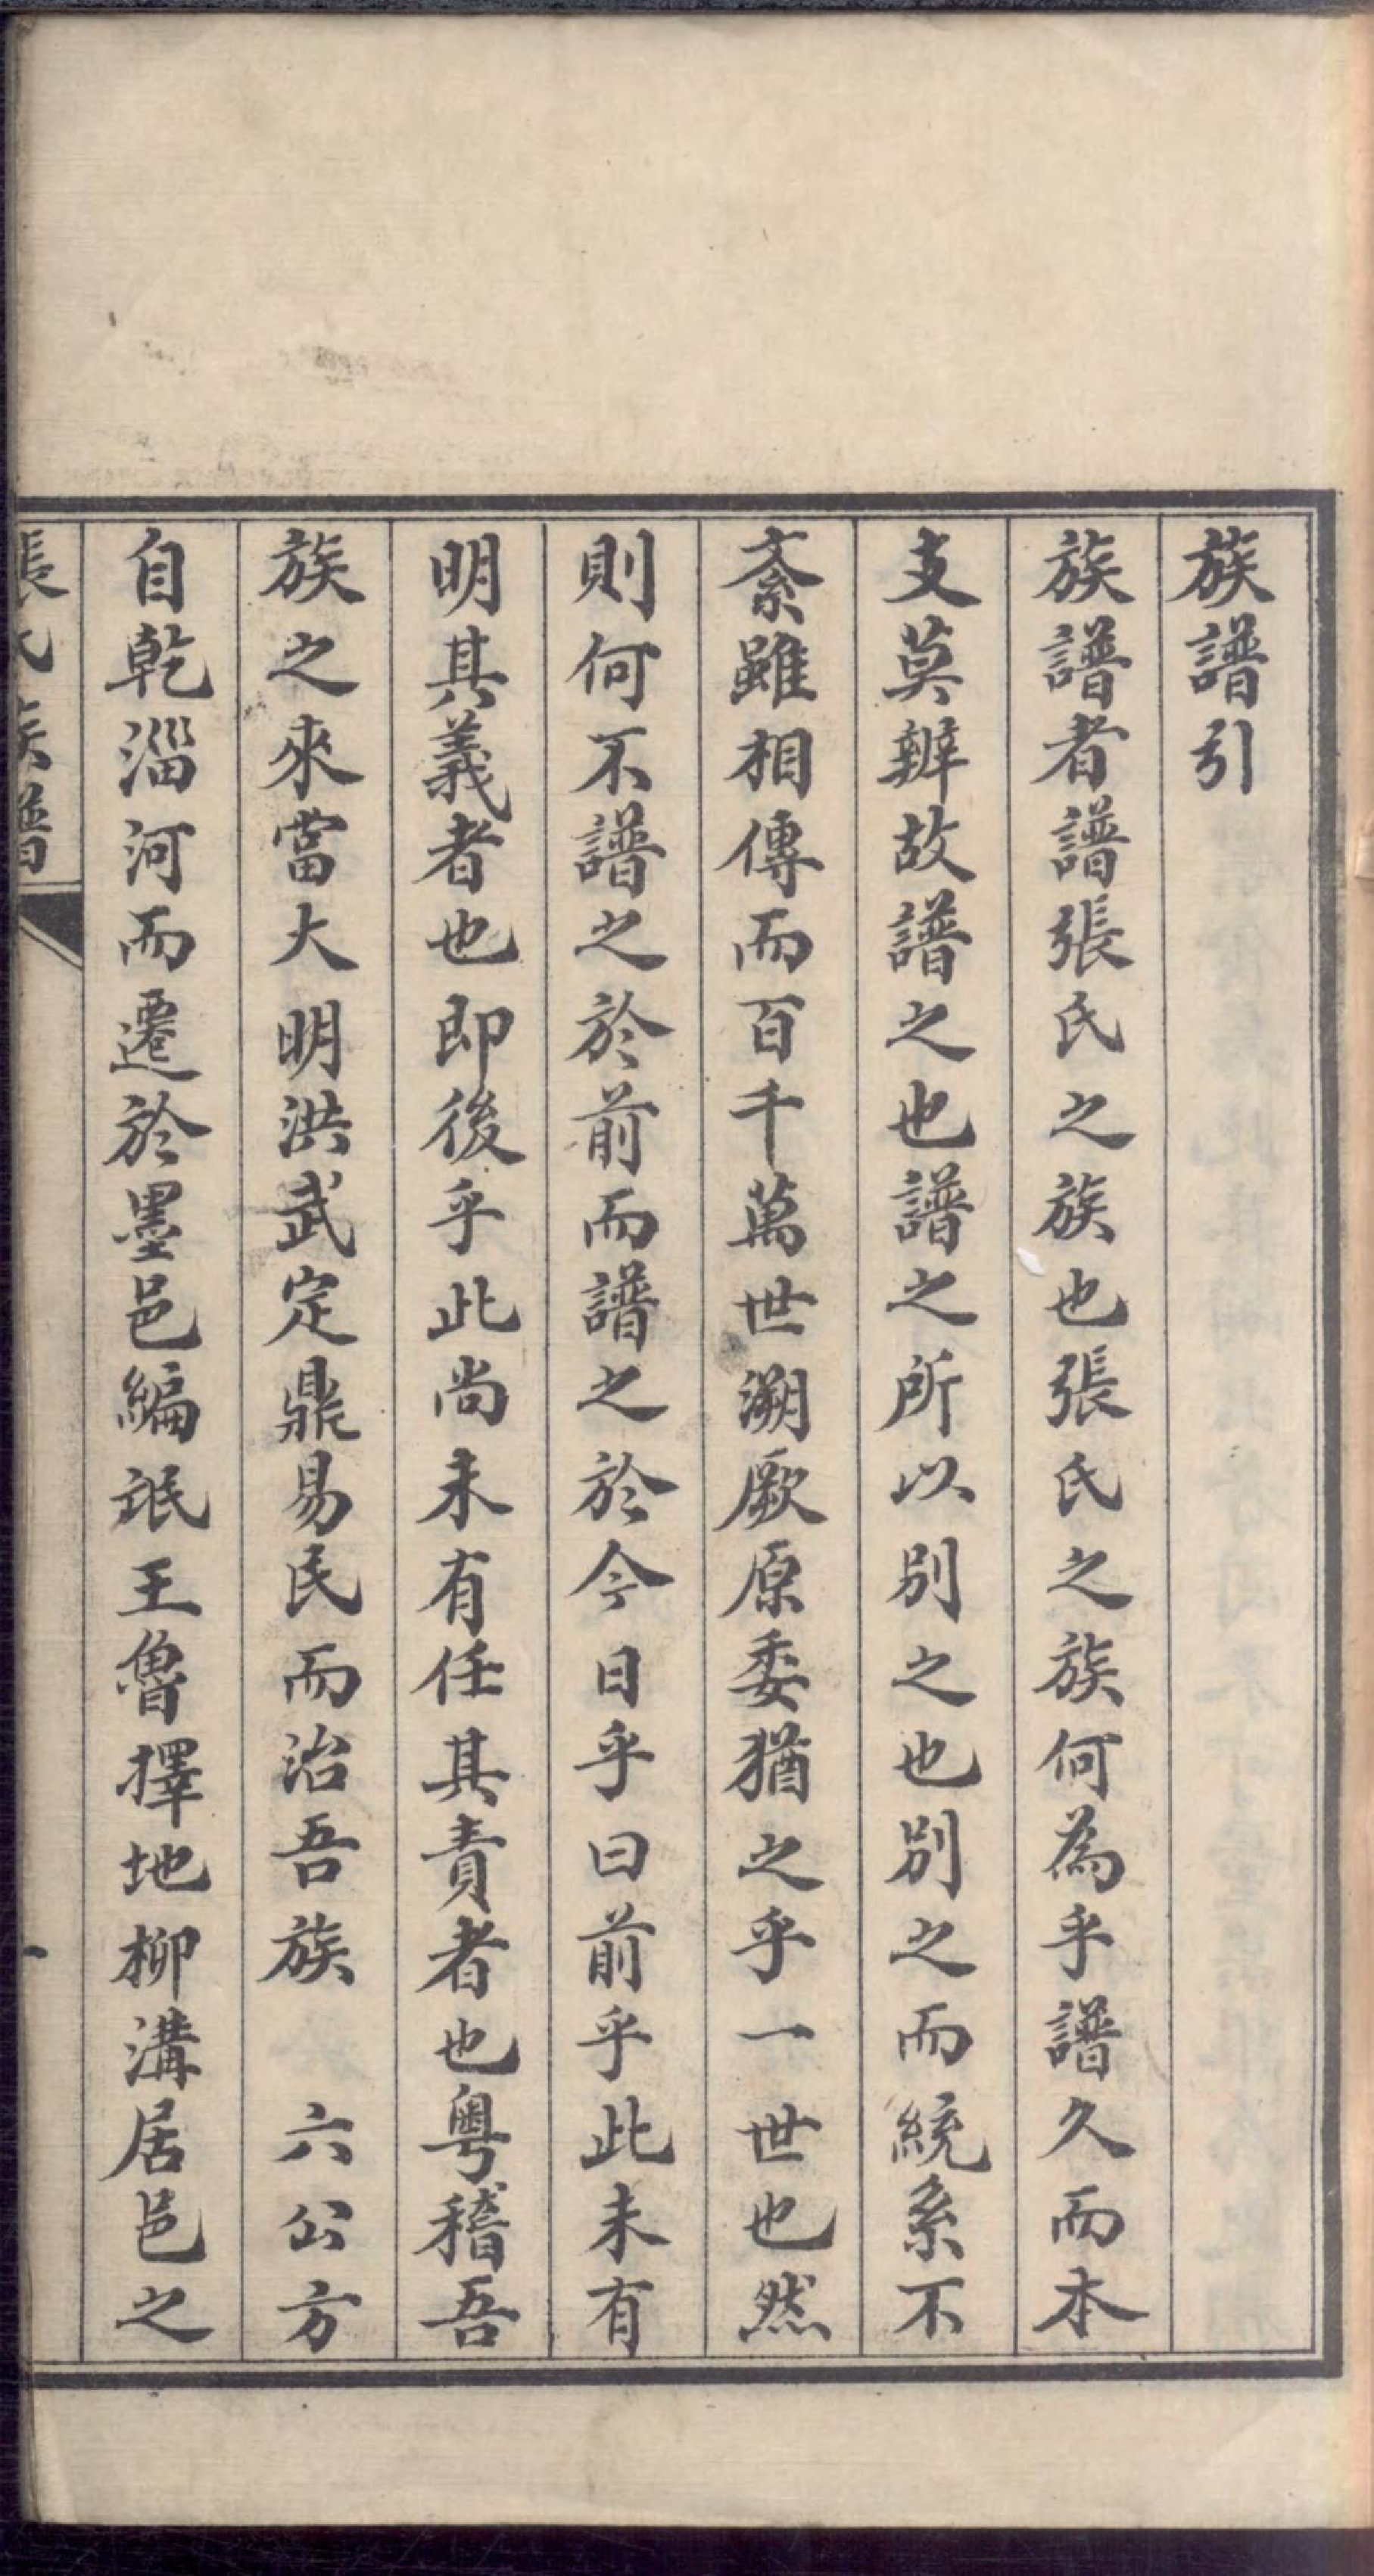 族譜引
族譜者譜張氏之族也張氏之族何為乎譜久而本
支莫辨故譜之也譜之所以別之也別之而統系不
紊雖相傳而百千萬世溯厥原委猶之乎一世也然
則何不譜之於前而譜之於今日乎曰前乎此未有
明其義者也即後乎此尚未有任其責者也粵稽吾
族之來當大明洪武定鼎易民而治吾族　六公方
自乾淄河而遷於墨邑編氓王魯擇地柳溝居邑之
張氏族譜　一